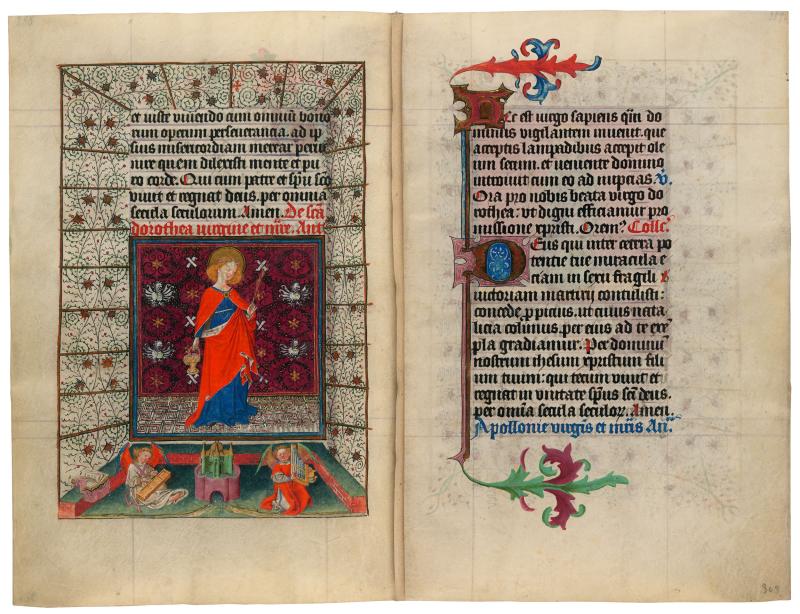 et iuste vivendo cum omniū bono
rum operum perseverancia. ad ip
sius misericordiam merear perve
nire quem dilexisti mente et pu
ro corde. Qui cum patre et spū sco
vivit et regnat deus. per omnia
secula seculorum. Amen. De scā
dorothea virgine et mr̄e. Ant
Hec est virgo sapiens quā do
minus vigilantem invenit. que
acceptis lampadibus accepit ole
um secum. et veniente domino
introivit cum eo ad nupcias. v̄.
Ora pro nobis beata virgo do
rothea: ut digni efficiamur pro
missione xpristi. Orem? Colle.
Deus qui inter cetera po
tentie tue miracula e
ciam in sexu fragili
victoriam martirij contulisti:
concede p̱picius. ut cuius nata
licia colimus. per eius ad te exe
pla gradiamur. Per dominū
nostrum ihesum xpristum fili
um tuum: qui tecum vivit et
regnat in unitate spūs scī deus.
per omīa secula seculoꝝ. Amen.
Apollonie virgīs et mr̄is An.
309